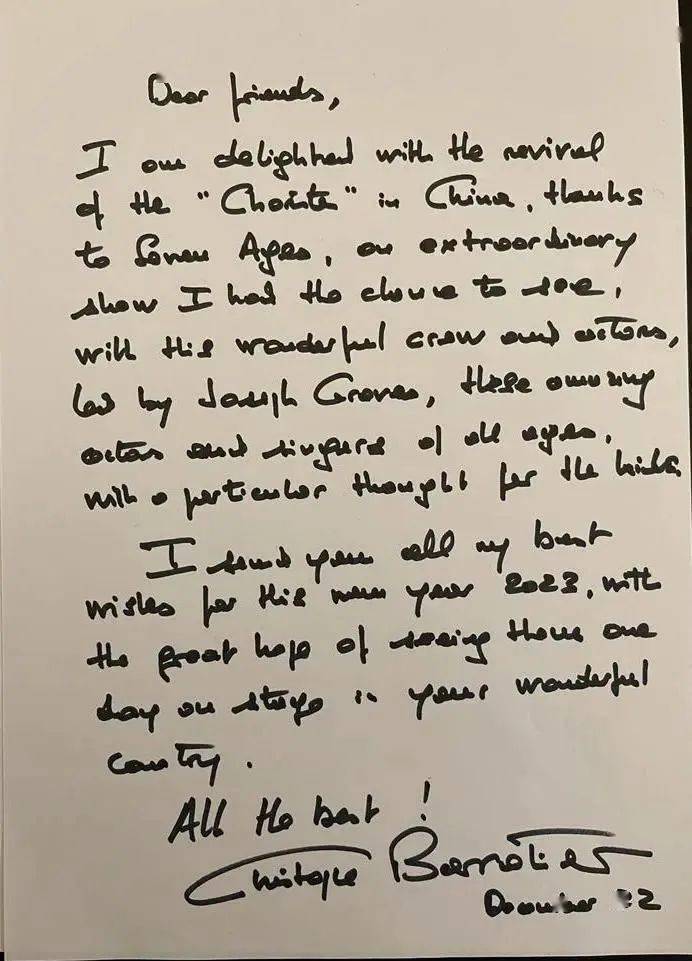 Dear friends,
I am delighted with the revival
of the "Choriste" in China, thanks
to Seven Ages, an extraordinary
show I had the chance to see,
with this wonderful crew and actors,
led by Joseph Graves, these amazing
actors and singers of all ages,
with a particular thought for the kids.
I send you all my best
wishes for this new year 2023, with
the great hope of seeing them one
day on stage in your wonderful
country.
All the best !
Christophe Barratier
December 22